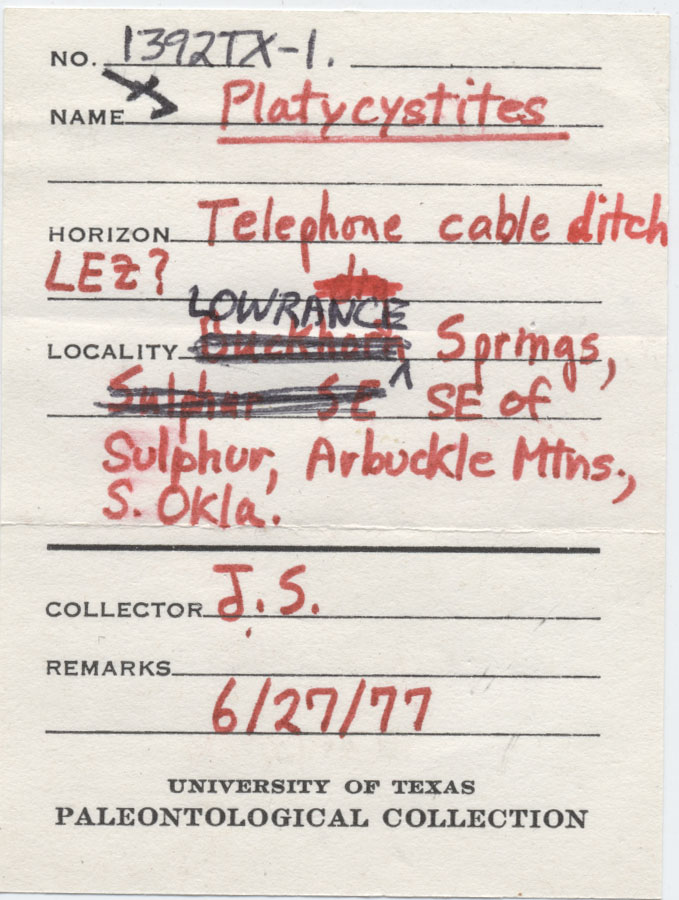 NO. 1392TX-1.
NAME Platycystites
HORIZON Telephone cable ditch
LEZ?
LOWRANCE
LOCALITY Buckhorn Springs,
Sulphur SE SE of
Sulphur, Arbuckle Mtns.,
S. Okla.
COLLECTOR J.S.
REMARKS
6/27/77
UNIVERSITY OF TEXAS
PALEONTOLOGICAL COLLECTION